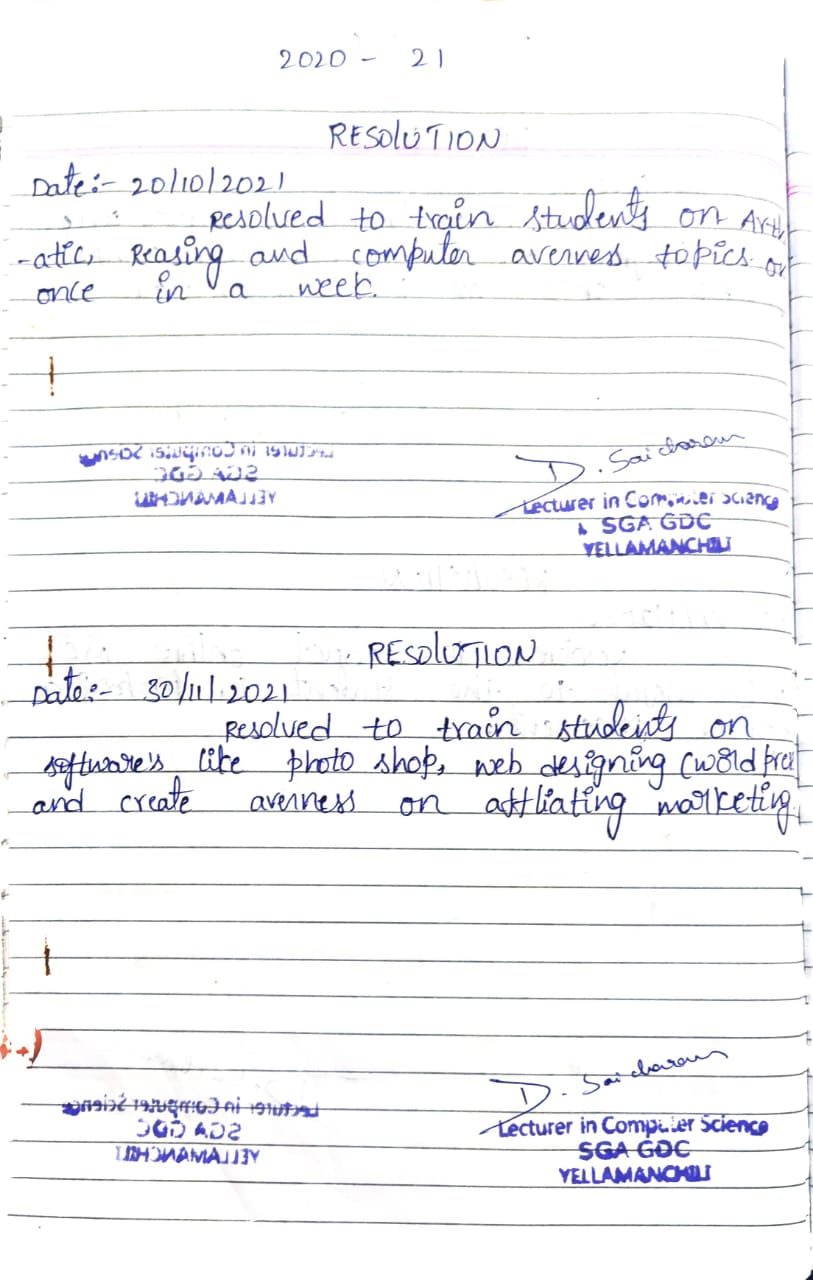 2020 - 21
RESOLUTION
Date:- 20/10/2021
Resolved to train students on Arth
-atic, Reasing and computer averness topics on
once in a week.
D. Saicharan
Lecturer in Computer Science
SGA GDC
YELLAMANCHILI
RESOLUTION
Date:- 30/11/2021
Resolved to train students on
software's like photo shop, web designing (word pres
and create averness on affliating marketing.
D. Saicharan
Lecturer in Computer Science
SGA GDC
YELLAMANCHILI